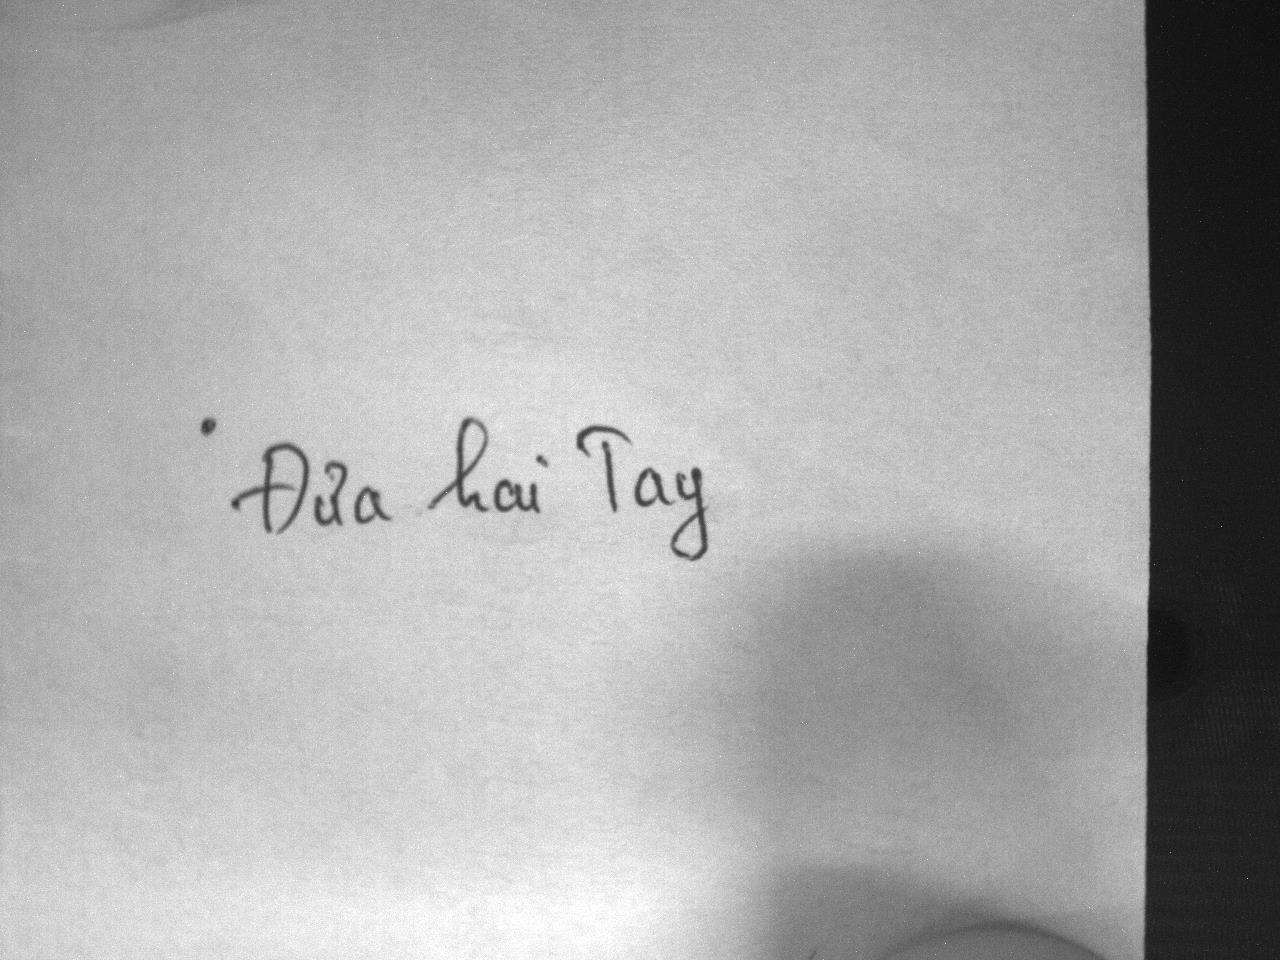 Đửa hai Tay